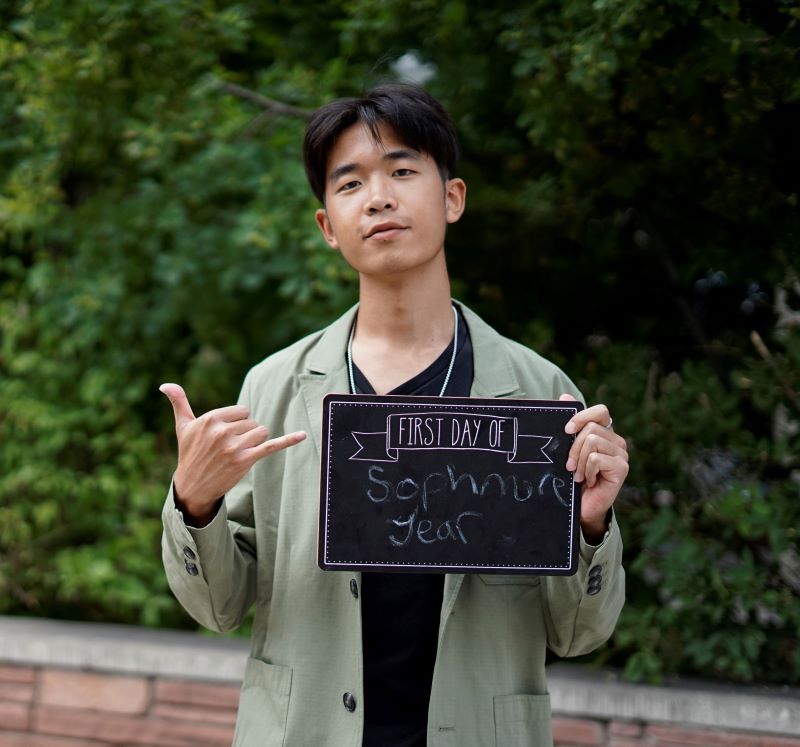 FIRST DAY OF
Sophmore
Year